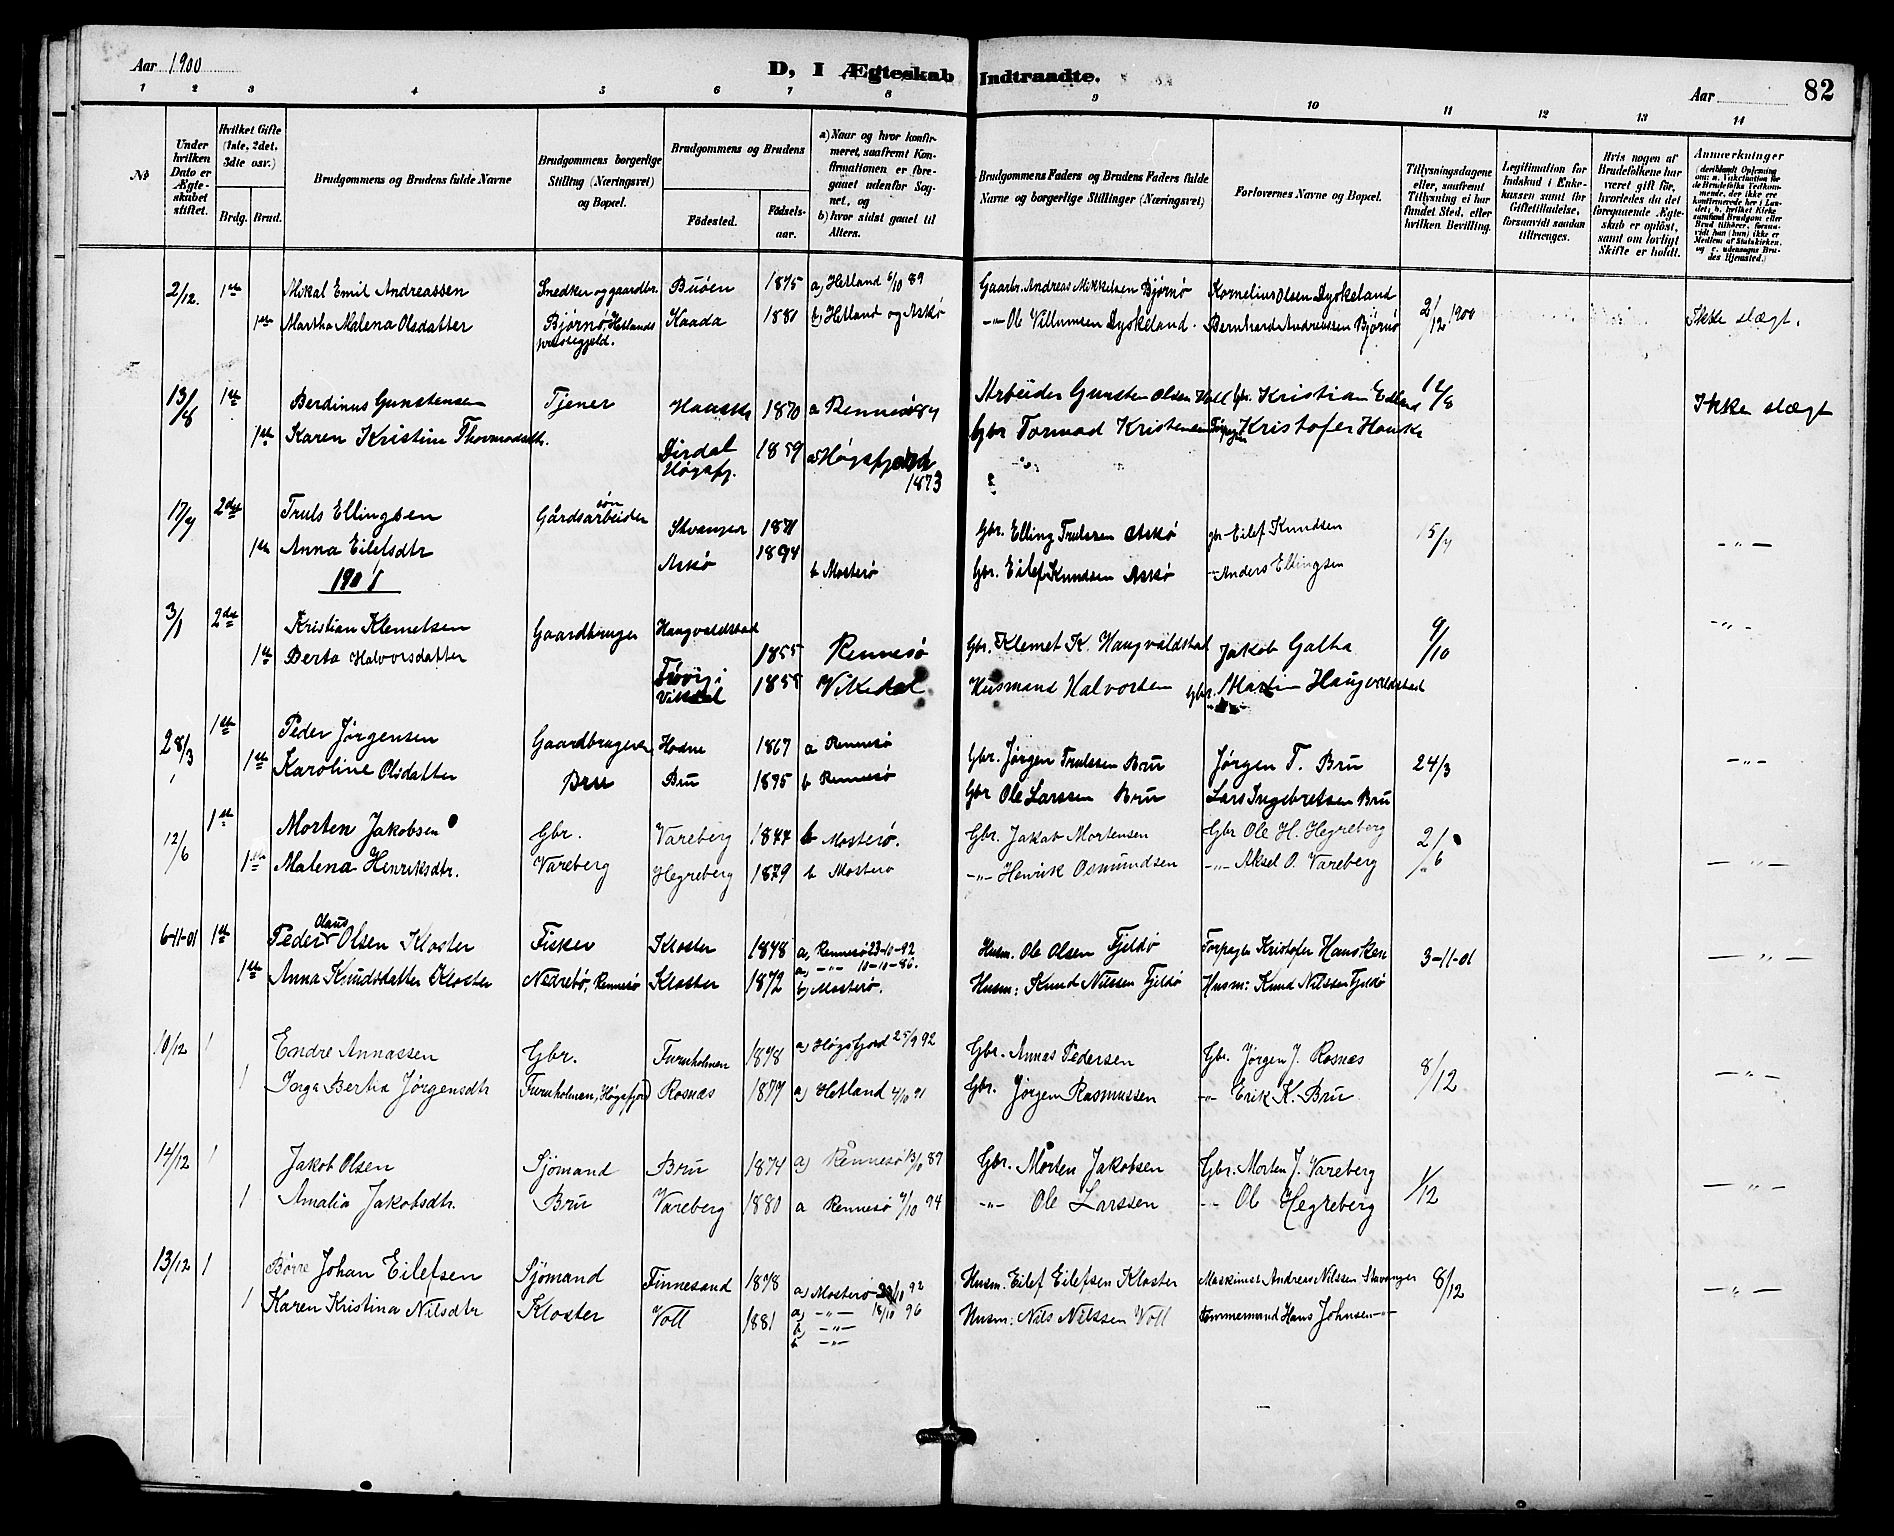 Aar 1900
D, I Ægteskab Indtraadte.
Aar
82
1 2 3 4 5 6 7 8 9 10 11 12 13 14
No
Under hvilken Dato er Ægteskabet stiftet.
Hvilket Gifte (1ste, 2det, 3die osv.)
Brdg. Brud.
Brudgommens og Brudens fulde Navne
Brudgommens borgerlige Stilling (Næringsvei) og Bopæl.
Brudgommens og Brudens
Fødested.
Fødselsaar.
a) Naar og hvor konfirmeret, saafremt Konfirmationen er foregaaet udenfor Sognet, og
b) hvor sidst gaaet til Alters.
Brudgommens Faders og Brudens Faders fulde Navne og borgerlige Stillinger (Næringsvei)
Forlovernes Navne og Bopæl.
Tillysningsdagene eller, saafremt Tillysning ei har fundet Sted, efter hvilken Bevilling.
Legitimation for Indskud i Enkekassen samt for Giftetilladelse, forsaavidt saadan tiltrænges.
Hvis nogen af Brudefolkene har været gift før, hvorledes da det foregaaende Ægteskab er opløst, samt om lovligt Skifte er holdt.
Anmærkninger
2/12. 1ste Mikal Emil Andreassen Snedker og gaardbr. Buøen 1875 a) Hetland 6/10 89 Gaarbr. Andreas Mikkelsen Bjørnø Kornelius Olsen Dyskeland 2/12 1900 Ikke slægt.
1ste Martha Malena Olsdatter Bjørnø, Hetlands præstegjeld. Haada 1881 b) Hetland og Askø -"- Ole Villumsen Dyskeland. Bernhard Andreassen Bjørnø
13/8 1ste Berdinus Gunstensen Tjener Hauske 1870 a Rennesø 84 Arbeider Gunsten Olsen Gbr. Kristian 12/8 Ikke slægt
1ste Karen Kristine Thormodsdtr. Dirdal Høgsfj. 1859 a Høgsfjord 1873 Gbr Tormod Kristensen Kristofer Hauske
17/4 2det Truls Ellingsen Gårdsarbeider søn Stvanger 1871 Gbr. Elling Trulssen Askø gbr Eilef Knudsen 15/4 -"-
1ste Anna Eilefsdtr Askø b Mosterø Gbr. Eilef Knudsen Askø -"- Anders Ellingsen
1901
3/1 2det Kristian Klemetsen Gaardbruger Haugvaldstad 1855 Rennesø Gbr. Klemet K. Haugvaldstad Jakob Galta 9/10 -"-
1ste Berta Halvorsdatter Vikedal 1855 Vikedal Husmand Halvorsen Gbr. Martin Haugvaldstad
28/3 1ste Peder Jørgensen Gaardbruger Hodne 1867 a Rennesø Gbr. Jørgen Trulssen Bru Jørgen T. Bru 24/3 -"-
1ste Karoline Olsdatter Bru Bru 1895 b Rennesø Gbr Ole Larssen Bru Lars Ingebretsen Bru
12/6 1ste Morten Jakobsen Gbr. Vareberg 1877 b Mosterø. Gbr. Jakob Mortensen Gbr Ole H. Hegreberg 2/6 -"-
1ste Malena Henriksdtr. Vareberg Hegreberg 1879 b Mosterø -"- Henrik Osmundsen -"- Aksel O. Vareberg
6-11-01 1ste Peder Olaus Olsen Kloster Fisker Kloster 1878 a, Rennesø 23-10-92 Husm. Ole Olsen Fjeldø Forpagter Kristofer Hausken 3-11-01 -"-
1ste Anna Knudsdatter Kloster Nedrebø, Rennesø Kloster 1872 a) -"- 10-10-86. b) Mosterø. Husm: Knud Nilssen Fjeldø Husm: Knud Nilssen Fjeldø
10/12 1 Endre Annassen Gbr. Furuholmen 1878 a) Høgsfjord 25/9 92 Gbr. Annas Pedersen Gbr. Jørgen J. Rosnæs 8/12 -"-
1 Inga Bertia Jørgensdtr Furuholmen, Høgsfjord Rosnæs 1879 a) Hetland 4/10 91 Gbr. Jørgen Rasmussen -"- Erik K. Bru
14/12 1 Jakob Olsen Sjømand Bru 1874 a) Rennesø 13/10 89 Gbr. Morten Jakobsen Gbr. Morten J. Vareberg 1/12 -"-
1 Amalia Jakobsdtr. Bru Vareberg 1880 a Rennesø 7/10 94 -"- Ole Larssen -"- Ole Hegreberg
13/12 1 Børre Johan Eilefsen Sjømand Finnesand 1878 a) Mosterø 23/10 92 Husm. Eilef Eilefsen Kloster Maskinist Andreas Nilssen Stavanger 8/12 -"-
1 Karen Kristina Nilsdtr Kloster Voll 1881 a) -"- 18/10 96 b) -"- b -"- Husm: Nils Nilssen Voll Tømmermand Hans Johnsen -"-